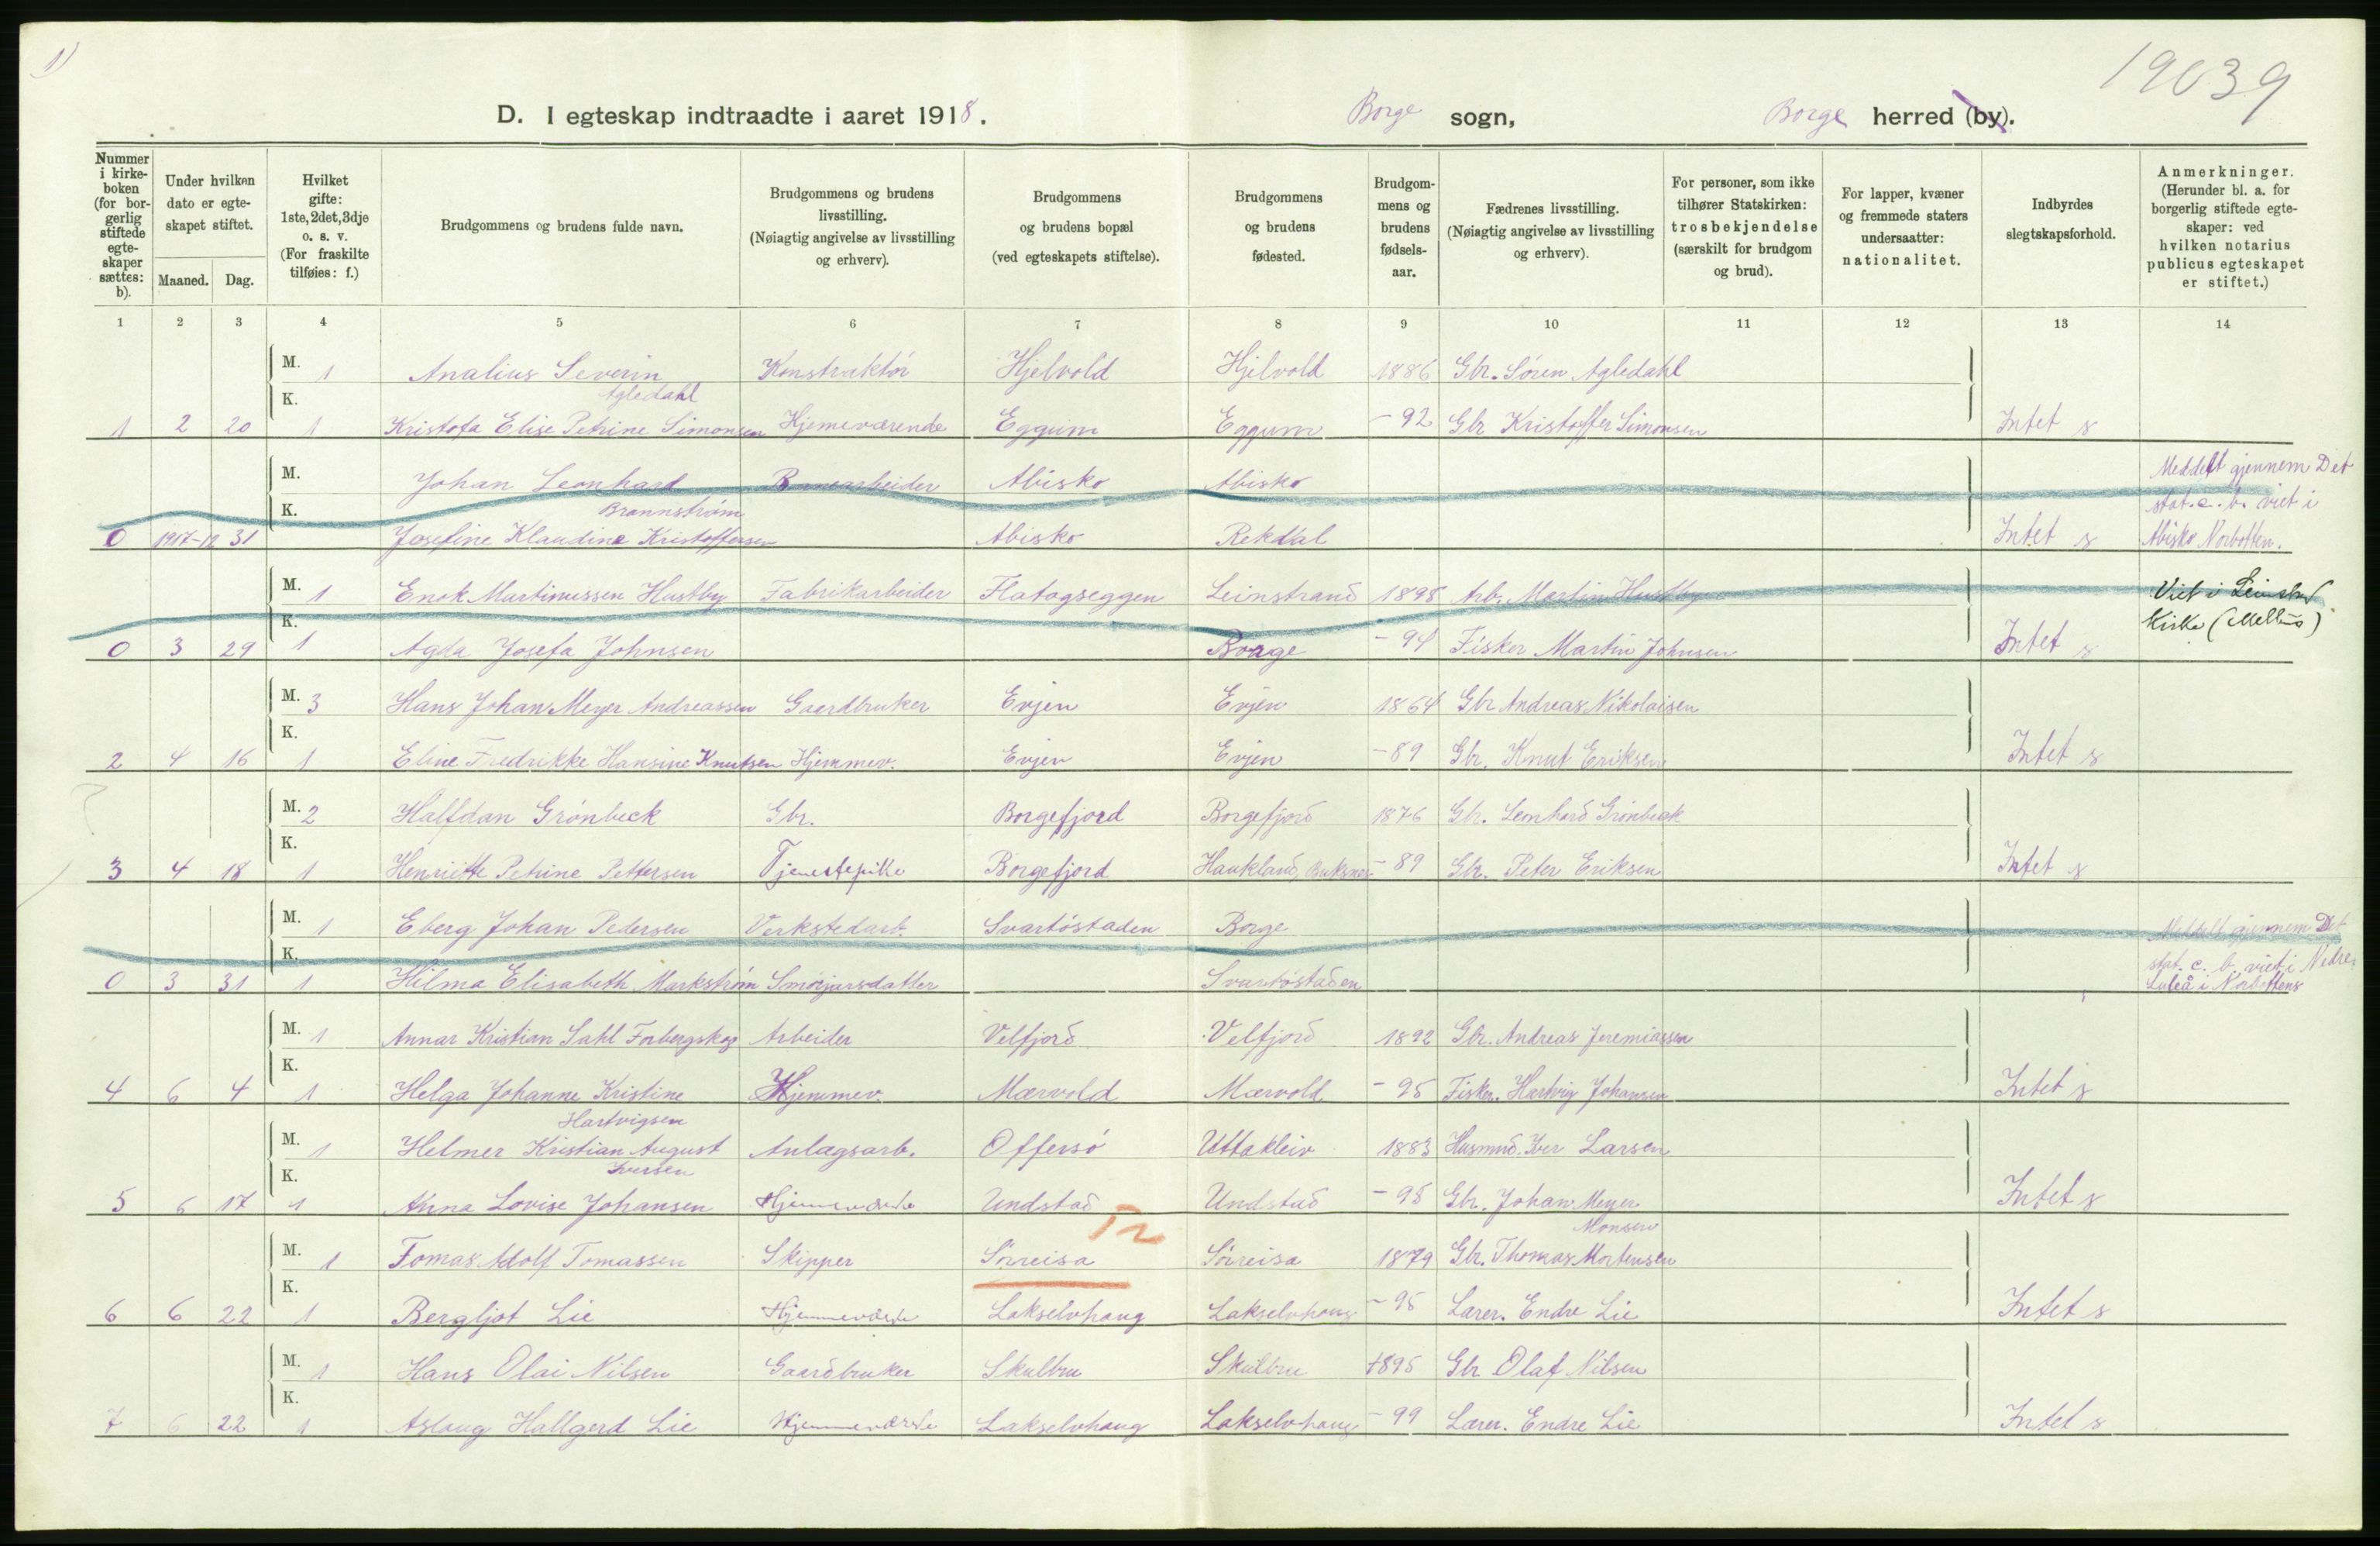 1)
19039
D. I egteskap indtraadte i aaret 1918. Borge sogn, Borge herred (by).
Nummer i kirkeboken (for borgerlig stiftede egteskaper sættes: b).
Under hvilken dato er egteskapet stiftet.
Maaned. Dag.
Hvilket gifte: 1ste, 2det, 3dje o. s. v. (For fraskilte tilføies: f.)
Brudgommens og brudens fulde navn.
Brudgommens og brudens livsstilling. (Nøiagtig angivelse av livsstilling og erhverv).
Brudgommens og brudens bopæl (ved egteskapets stiftelse).
Brudgommens og brudens fødested.
Brudgommens og brudens fødselsaar.
Fædrenes livsstilling. (Nøiagtig angivelse av livsstilling og erhverv).
For personer, som ikke tilhører Statskirken: trosbekjendelse (særskilt for brudgom og brud).
For lapper, kvæner og fremmede staters undersaatter: nationalitet.
Indbyrdes slegtskapsforhold.
Anmerkninger. (Herunder bl. a. for borgerlig stiftede egteskaper: ved hvilken notarius publicus egteskapet er stiftet.)
1 2 3 4 5 6 7 8 9 10 11 12 13 14
M. 1 Analius Severin Konstruktør Hjelvold Hjelvold 1886 Gbr. Søren Agledahl
K. Agledahl
1 2 20 1 Kristofa Elise Petrine Simonsen Hjemeværende Eggum Eggum - 92 Gbr Kristoffer Simonsen Intet s
M. Johan Leonhard Banearbeider Abisko Abisko Meddelt gjennem Det
K. Brannstrøm stat. c. b. viet i
0 1917-12 31 Josefine Klaudine Kristoffersen Abisko Rekdal Intet s Abisko Norbotten.
M. 1 Enok Martinussen Hustby Fabrikarbeider Flatogseggen Leinstrand 1898 Arb. Martin Hustby Viet i Leinstr
K. Kirke (Melhus)
0 3 29 1 Agda Josefa Johnsen Borge - 94 Fisker Martin Johnsen Intet s
M. 3 Hans Johan Meyer Andreassen Gaardbruker Evjen Evjen 1864 Gbr Andreas Nikolaisen
K.
2 4 16 1 Eline Fredrikke Hansine Knutsen Hjemmev. Evjen Evjen - 89 Gbr. Knut Eriksen Intet s
M. 2 Halfdan Grønbeck Gbr. Borgefjord Borgefjord 1876 Gbr. Leonhard Grønbeck
K.
3 4 18 1 Henriette Petrine Pettersen Tjenestepike Borgefjord Haukland, Buksnes - 89 Gbr. Peter Eriksen Intet s
M. 1 Eberg Johan Pedersen Verkstedarb. Svartöstaden Borge Meddelt gjennem Det
K. stat. c. b. viet i Nedre
0 3 31 1 Hilma Elisabeth Markstrøm Smörjarsdatter Svartöstaden Luleå i Norbottens
M. 1 Annar Kristian Sahl Forbergskog Arbeider Velfjord Velfjord 1892 Gbr. Andreas Jeremiassen
K.
4 6 4 1 Helga Johanne Kristine Hjemmev. Mærvold Mærvold - 95 Fisker. Hartvig Johansen Intet s
Hartvigsen
M. 1 Helmer Kristian August Anlægsarb. Offersö Uttakleiv 1883 Husmnd. Iver Larsen
K. Iversen
5 6 17 1 Anna Lovise Johansen Hjemmeværende Undstad Undstad - 98 Gbr. Johan Meyer Intet s
Monsen
Tr
M. 1 Tomas Adolf Tomassen Skipper Sörreisa Sörreisa 1879 Gbr. Thomas Mortensen
K.
6 6 22 1 Bergljot Lie Hjemmeværende Lakselvhaug Lakselvhaug - 95 Lærer. Endre Lie Intet s
M. 1 Hans Olai Nilsen Gaardbruker Skulbru Skulbru 1895 Gbr Olaf Nilsen
K.
7 6 22 1 Aslaug Hallgerd Lie Hjemmeværende Lakselvhaug Lakselvhaug - 99 Lærer. Endre Lie Intet s